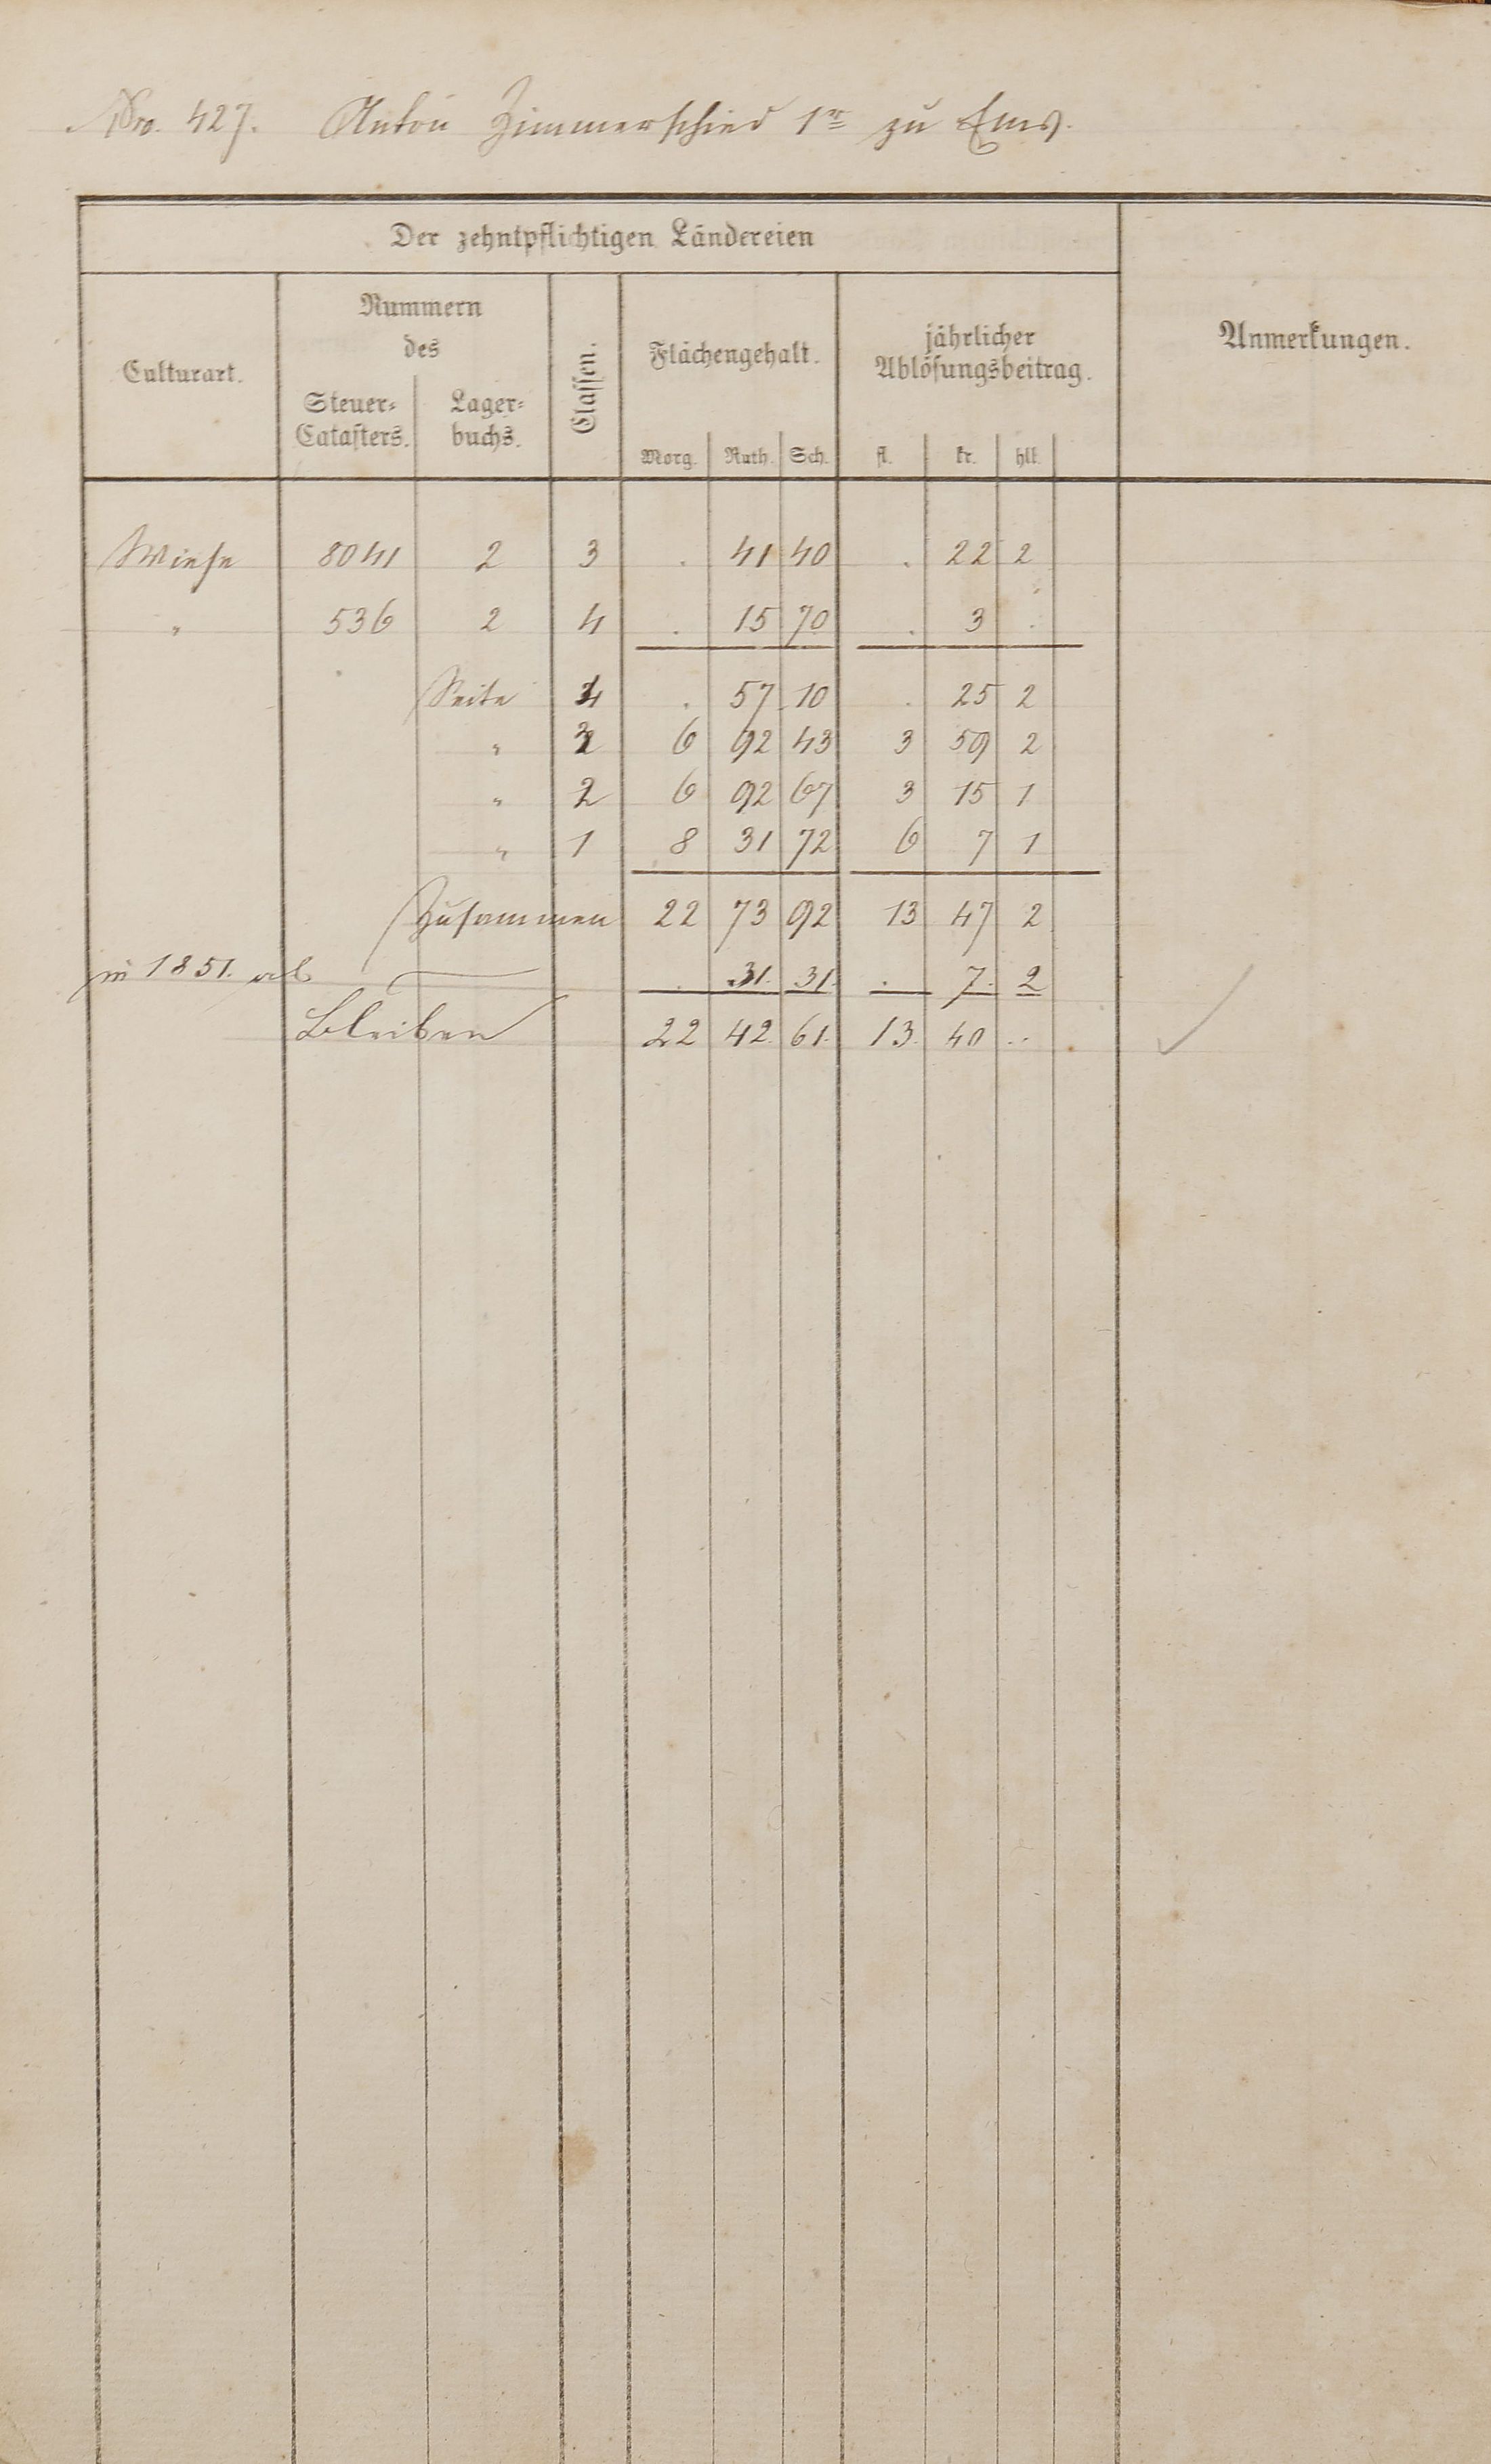 Nro. 427. Anton Zimmerschied 1r zu Ems.
Der zehntpflichtigen Ländereien
Culturart.
Nummern
des
Steuer-
Catasters.
Lager-
buchs.
Classen.
Flächengehalt.
Morg. Ruth. Sch.
jährlicher
Ablösungsbeitrag.
fl. kr. hll.
Anmerkungen.
Wiese 8041 2 3 . 41 40 . 22 2
" 536 2 4 . 15 70 . 3 .
Seite 4 . 57 10 . 25 2
" 3 6 92 43 3 59 2
" 2 6 92 67 3 15 1
" 1 8 31 72 6 7 1
Zusammen 22 73 92 13 47 2
in 1851. ab . 31. 31. . 7. 2
bleiben 22 42. 61. 13. 40 ..